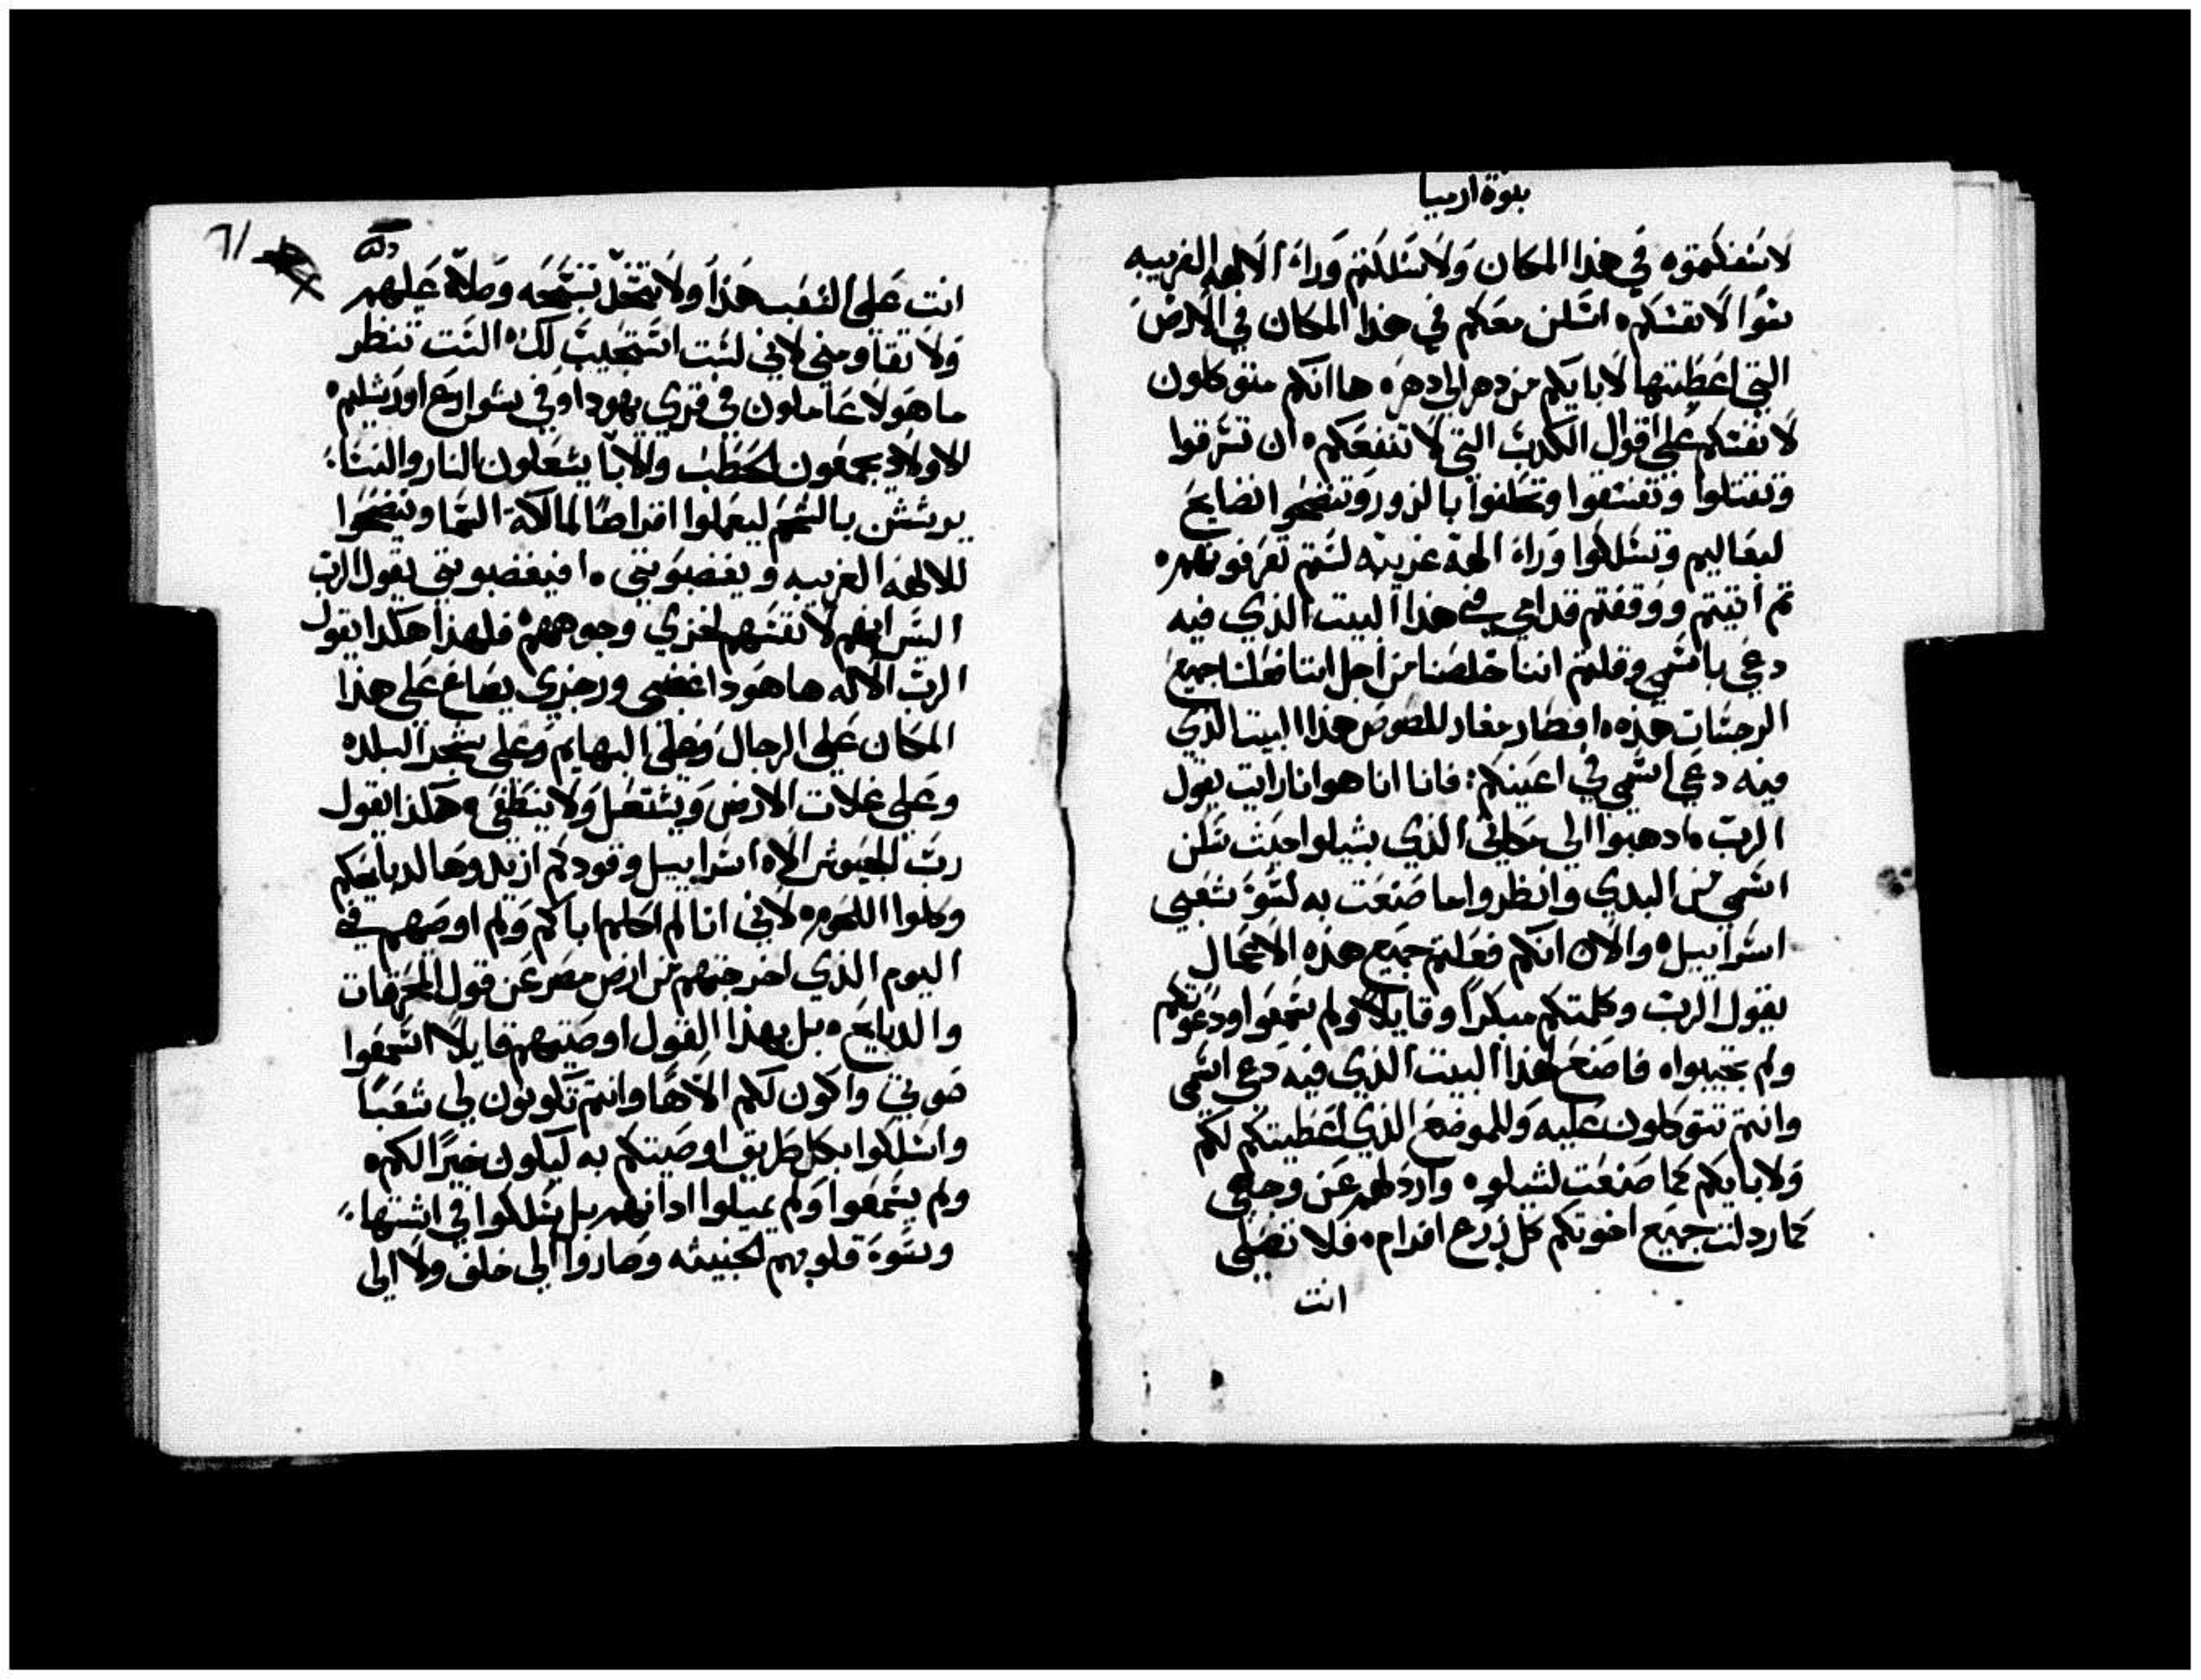 نبوة ارميا
لا تسفكوه في هذا المكان ولا تسلكتم وراء الالهه الغريبه
سوًا لانفسكم ه اسكن معكم في هذا المكان في الارض
التي اعطيتها لابايكم من دهر الي دهر ه ها انكم متوكلون
لانفسكم علي اقوال الكدب التي لا تنفعكم ه ان تسرقوا
وتقتلوا وتفسقوا وتحلفوا بالزور وتنضحوا نضايح
لبعاليم وتسلكوا وراء الهة غريبه لستم تعرفونهم ه
ثم اتيتم ووقفتم قدامي في هذا البيت الذي فيه
دعي باسمي وقلتم اننا خلصنا من اجل اننا فعلنا جميع
الرجسات هذه ه افصار مغار للصوص هذا البيت الذي
فيه دعي اسمي في اعينكم: فانا انا هو انا رايت يقول
الرب ه ادهبوا الي مكاني الذي بشيلوا حيث سكن
اسمي من البدي وانظروا ما صنعت به لسوء شعبي
اسراييل ه والان انكم فعلتم جميع هذه الاعمال
يقول الرب وكلمتكم مبكرًا وقايلًا ولم تسمعوا ودعوتكم
ولم تجيبوا ه فاصنع لهذا البيت الذي فيه دعي اسمي
وانتم تتوكلون عليه وللموضع الذي اعطيتكم لكم
ولابايكم كما صنعت لشيلوه وارذلهم عن وجهي
كما ردلت جميع اخوتكم كل زرع افرام ه فلا تصلي
انت
٦١
انت علي الشعب هذا ولا تتخذ تسمعه وصلاة عليهم
ولا تقاومني لاني لست استجيب لك ه الست تنظر
ما هولا عاملون في قري يهودا وفي شوارع اورشليم ه
الاولاد يجمعون الحطب والابا يشعلون النار والنسا
يرششن بالشحم ليعملوا اقراصًا لمالكة السما وينضحوا
للالهه الغريبه ويغضبونني ه افيغضبونني يقول الرب
الس انهم لانفسهم لخزي وجوههم ه فلهذا هكدا يقول
الرب الاله ها هو دا غضبي ورجزي يصاغ علي هذا
المكان علي الرجال وعلي البهايم وعلي شجر البلده
وعلي غلات الارض ويشتعل ولا ينطفي ه هكذا يقول
رب الجيوش الاه اسراييل وقودكم ازيدوها لدبايحكم
وكلوا اللحوم ه لاني انا لم اكلم اباكم ولم اوصهم في
اليوم الذي اخرجتهم من ارض مصر عن قول المحرقات
والدبايح ه بل بهذا القول اوصيتهم قايلًا اسمعوا
صوتي واكون لكم الاهًا وانتم تكونون لي شعبًا
واسلكوا بكل طريق اوصيتكم به ليكون خيرًا لكم ه
ولم يسمعوا ولم يميلوا ادانهم بل سلكوا في اشتها
وسوء قلوبهم الخبيثه وصاروا الي خلف ولا الي